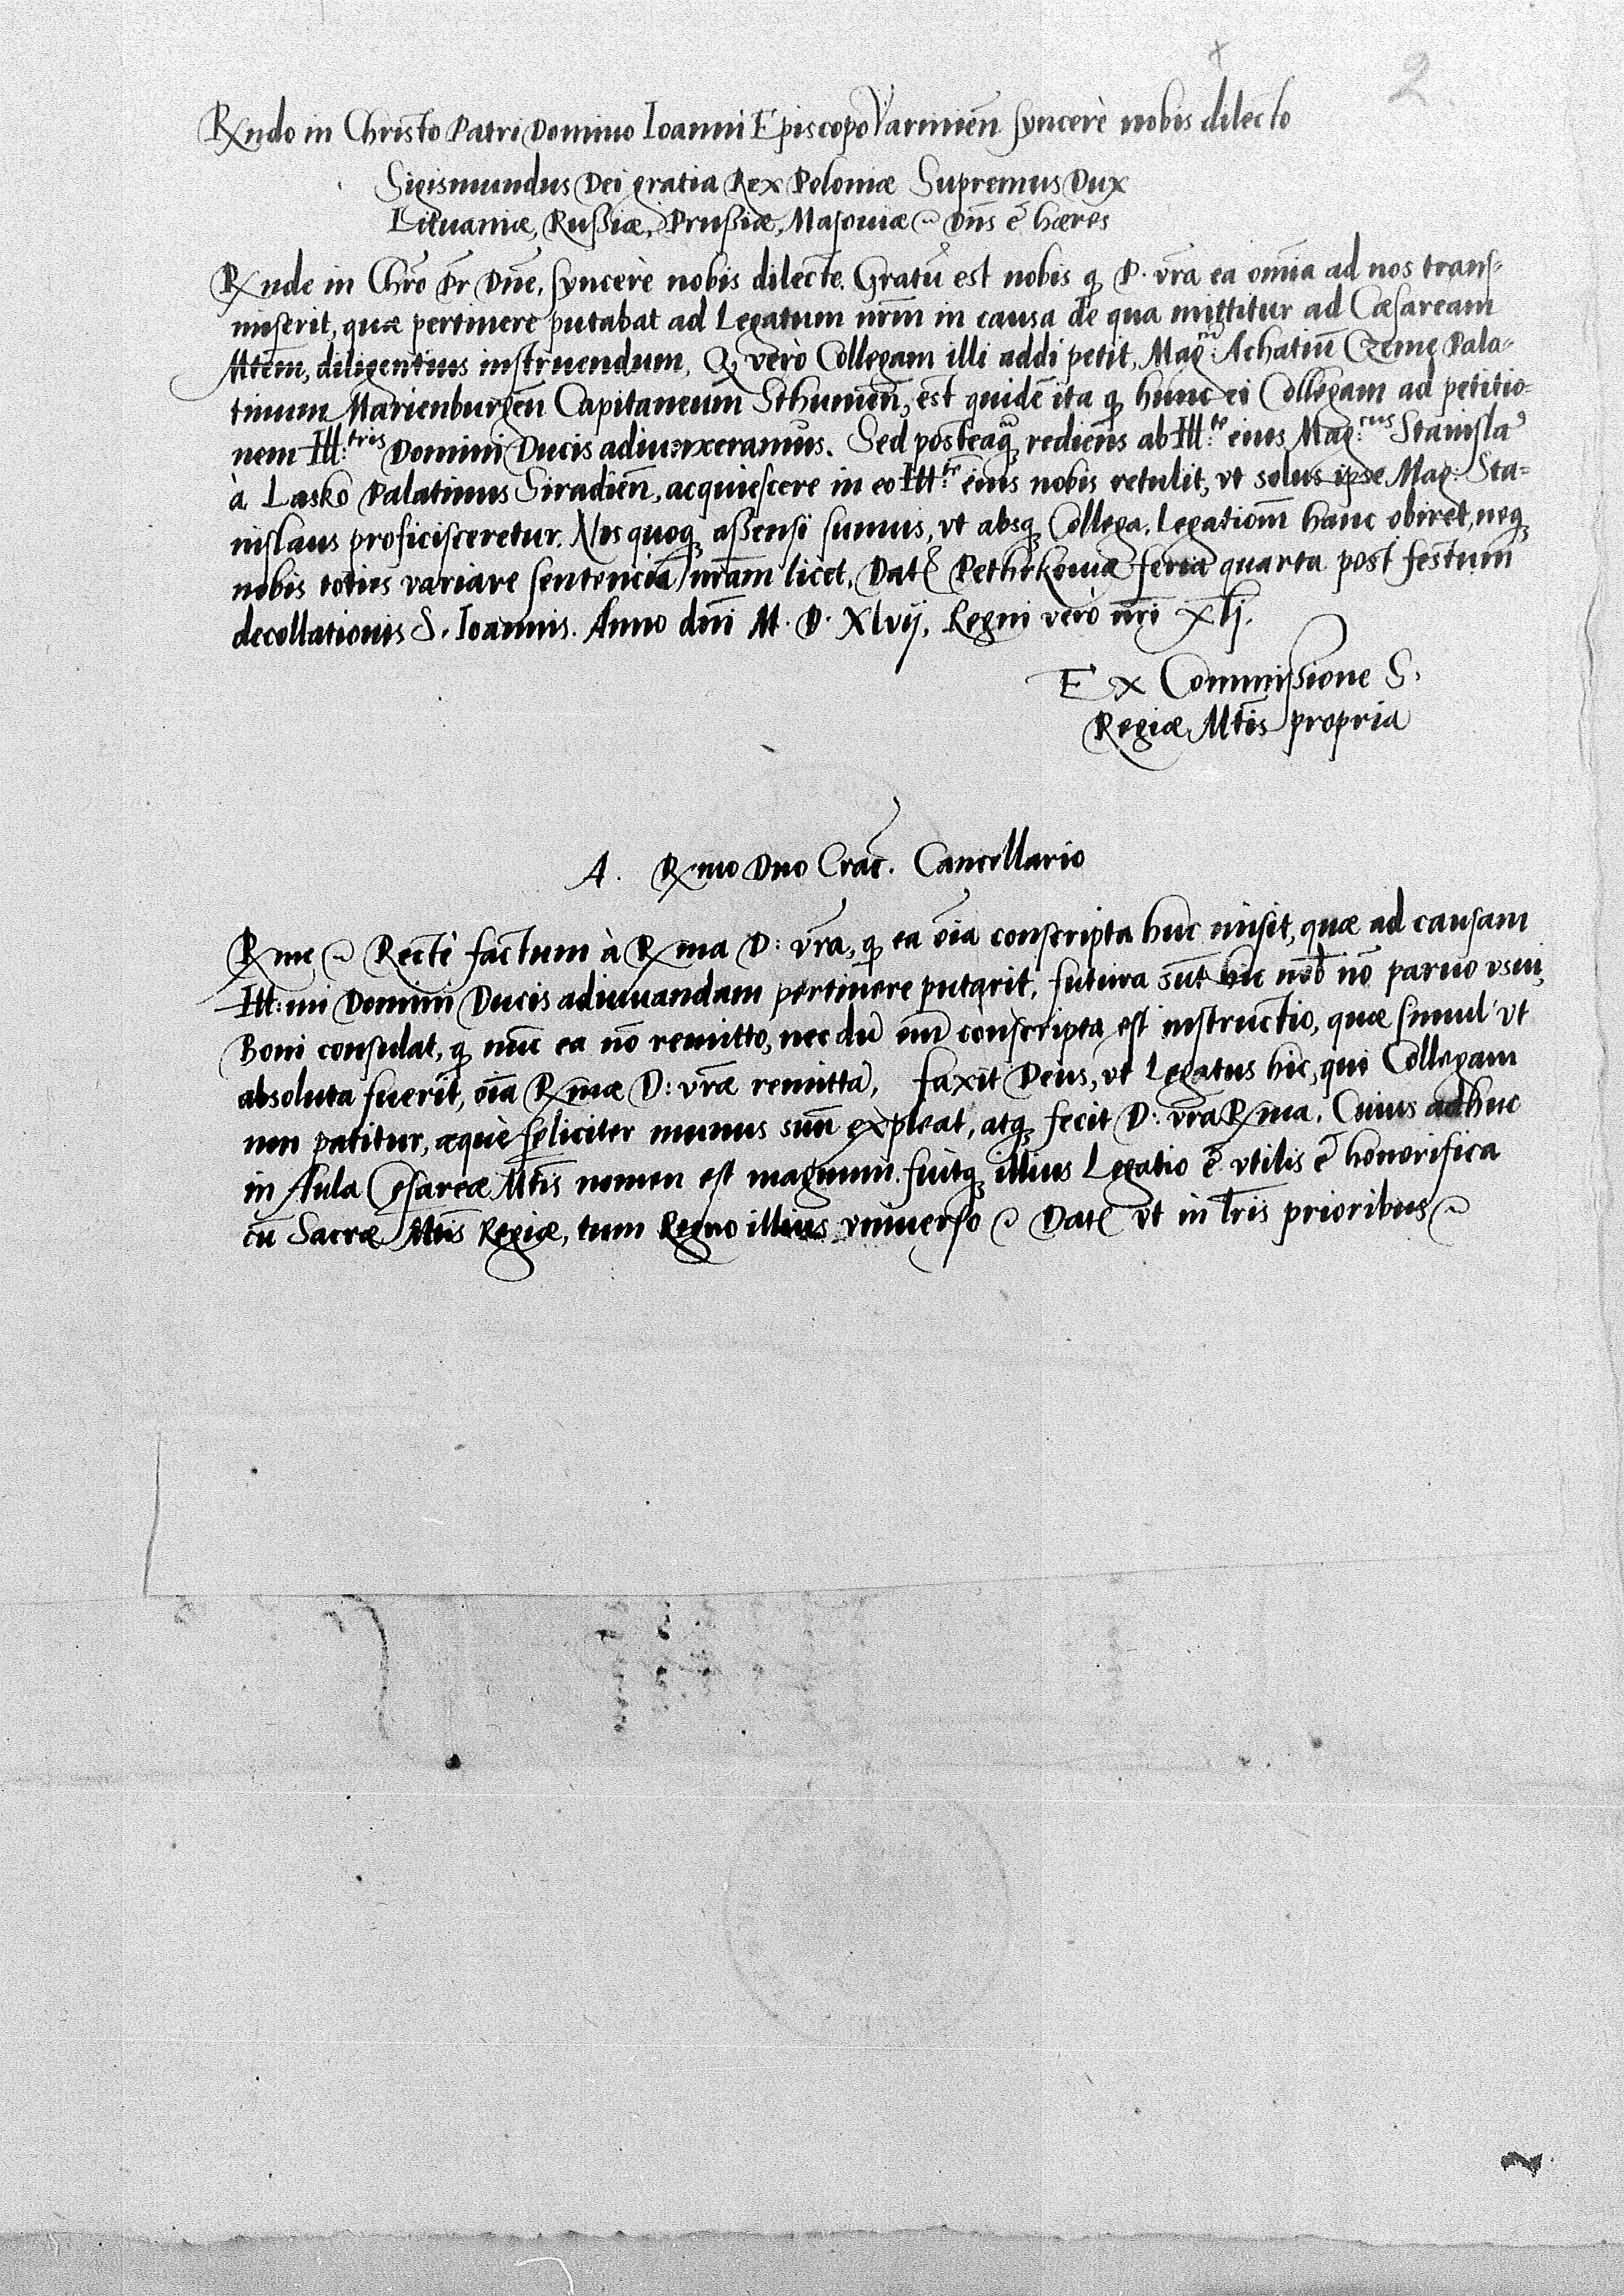 2
Rx͠ndo in Christo Patri Domino Ioanni Episcopo Varmien̄ syncerè nobis dilecto
Sigismundus Dei gratia Rex Poloniæ Supremus Dux
Lituaniæ, Russiæ, Prussiæ, Masouiæ Dn̄s et̄ hæres
Rx͠nde in Chr̄o Pr̄ Dn̄e, syncerè nobis dilecte. Gratū est nobis ꝙ D. vr̄a ea om̄ia ad nos trans-
miserit, quæ pertinere putabat ad Legatum nr̄m in causa de qua mittitur ad Cæsaream
Mtem̄, diligentius instruendum, Q vero Collegam illi addi petit, Mag:cum Achatiū Czeme Pala-
tinum Marienburgen̄ Capitaneum Sthumen̄, est quidē ita ꝙ hunc ei Collegam ad petitio-
nem Ill:tris Domini Ducis adiunxeramus. Sed posteaꝗ rediens ab Ill:te eius Mag:cus Stanisla9
à Lasko Palatinus Siradien̄, acquiescere in eo Ill:te eius nobis retulit, vt solus ipse Mag: Sta-
nislaus proficisceretur. Nos quoq; assensi sumus, vt absq; Collega Legationē hanc obiret, neq;
nobis toties variare sentenciā nr̄am licet, Dat Pethrkouiæ feria quarta post festum
decollationis S. Ioannis. Anno dn̄i M. D. Xlvij, Regni verò nr̄i xlj.
Ex Commissione S.
Regiæ Mtis̄ propria
A. Rx͠mo Dn̄o Crac̄. Cancellario
Rx͠me Rectè factum à Rx͠ma D: vr̄a, ꝙ ea oīa conscripta huc misit, quæ ad causam
Ill:mi Domini Ducis adiuuandam pertinere putarit, futura sūt hic nob̄ nō paruo vsui,
Boni consulat, ꝙ nūc ea nō remitto, nec dū em̄ conscripta est instructio, quæ simul vt
absoluta fuerit, oīa Rx͠mæ D: vr̄æ remittā, faxit Deus, vt Legatus hic, qui Collegam
non patitur, æquè feliciter munus suū expleat, atq; fecit D: vr̄a Rx͠ma. Cuius adhuc
in Aula Cęsareæ Mtis̄ nomen est magnum. fuitq; illius Legatio et̄ vtilis et̄ honorifica
cū Sacræ Mtis̄ Regiæ, tum Regno illius vniuerso Dat vt in lr̄is prioribus